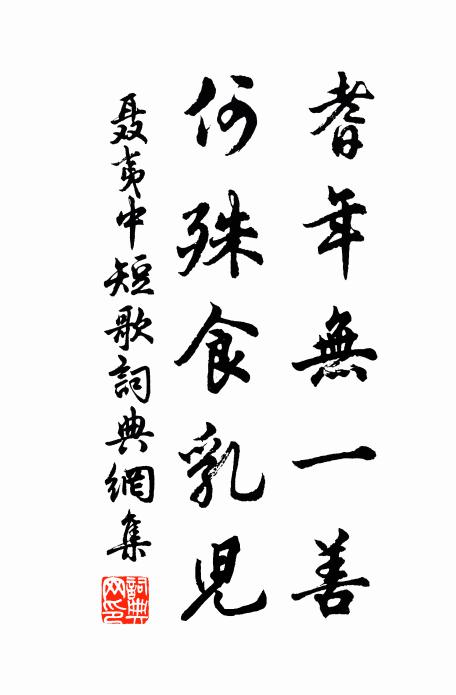 耆年無一善
何殊食乳児
聂夷中短歌詞典網集
詞典网印